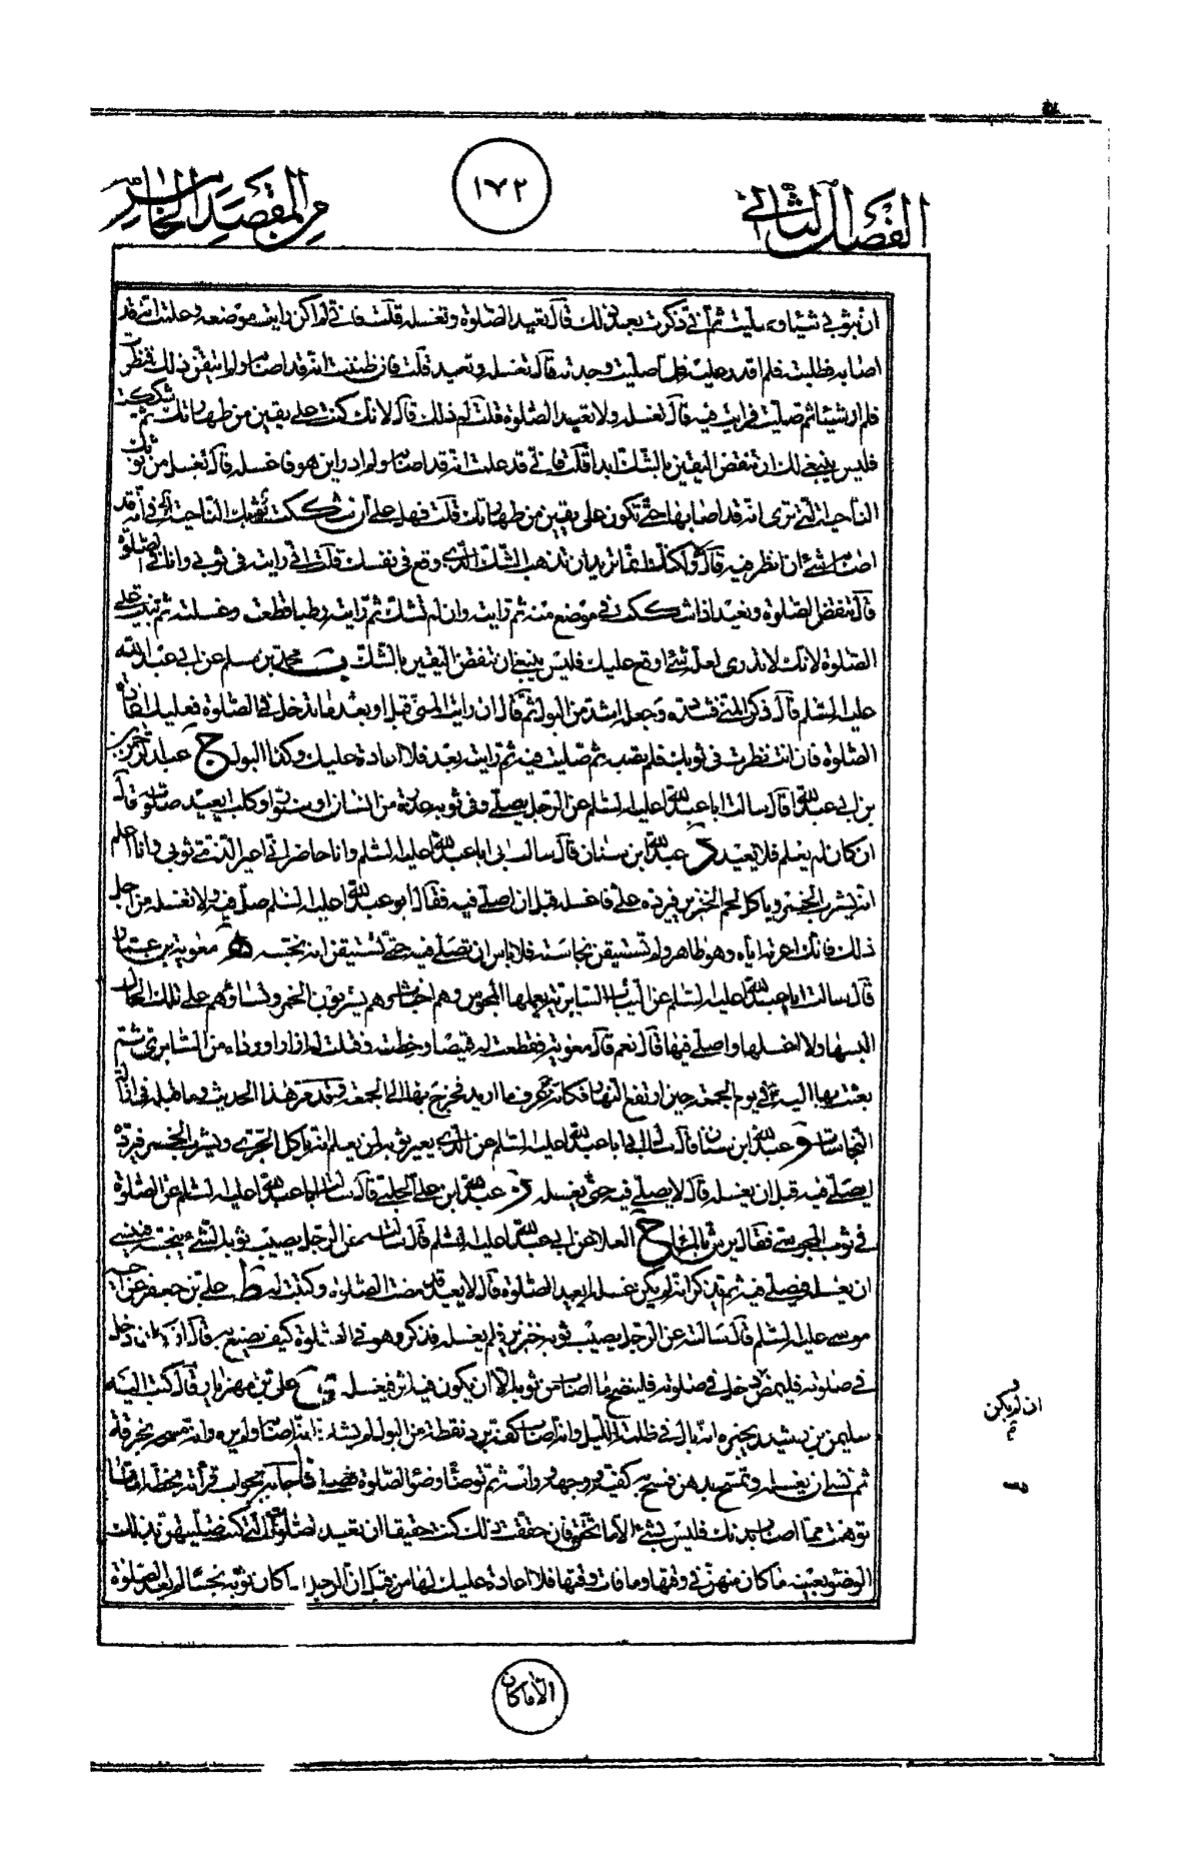 الفصل الثاني
١٧٢
من المقصد الخامس
ان بثوبي شيئا وصليت ثم اني ذكرت بعد ذلك قال تعيد الصلوة وتغسله قلت فاني لم اكن رايت موضعه وعلمت انه قد
اصابه فطلبته فلم اقدر عليه فلما صليت وجدته قال تغسله وتعيد قلت فان ظننت انه قد اصابه ولم اتيقن ذلك فنظرت
فلم ار شيئا ثم صليت فرايت فيه قال تغسله ولا تعيد الصلوة قلت لم ذلك قال لانك كنت على يقين من طهارتك ثم شككت
فليس ينبغي لك ان تنقض اليقين بالشك ابدا قلت فاني قد علمت انه قد اصابه ولم ادر اين هو فاغسله قال تغسل من ثوبك
الناحية التي ترى انه قد اصابها حتى تكون على يقين من طهارتك قلت فهل علي ان شككت في انه قد
اصابه شئ ان انظر فيه قال لا ولكنك انما تريد ان تذهب الشك الذي وقع في نفسك قلت اني رايته في ثوبي وانا في الصلوة
قال تنقض الصلوة وتعيد اذا شككت في موضع منه ثم رايته وان لم تشك ثم رايته رطبا قطعت وغسلته ثم بنيت على
الصلوة لانك لا تدري لعله شئ اوقع عليك فليس ينبغي ان تنقض اليقين بالشك ب محمد بن مسلم عن ابي عبد الله
عليه السلم قال ذكر المني فشدده وجعله اشد من البول ثم قال ان رايت المني قبل او بعد ما تدخل في الصلوة فعليك اعادة
الصلوة فان انت نظرت في ثوبك فلم تصبه ثم صليت فيه ثم رايته بعد فلا اعادة عليك وكذا البول ج عبد الرحمن
بن ابي عبد الله قال سالت ابا عبد الله عليه السلم عن الرجل يصلي وفي ثوبه عذرة من انسان او سنور او كلب ايعيد صلوته قال
ان كان لم يعلم فلا يعيد د عبد الله بن سنان قال سال ابي ابا عبد الله عليه السلم وانا حاضر اني اعير الذمي ثوبي وانا اعلم
انه يشرب الخمر وياكل لحم الخنزير فيرده علي فاغسله قبل ان اصلي فيه فقال ابو عبد الله عليه السلم صل فيه ولا تغسله من اجل
ذلك فانك اعرته اياه وهو طاهر ولم تستيقن نجاسته فلا باس ان تصلي فيه حتى تستيقن انه نجسه ه معوية بن عمار
قال سالت ابا عبد الله عليه السلم عن الثياب السابرية يعملها المجوس وهم اخباث وهم يشربون الخمر ونساؤهم على تلك الحال
البسها ولا اغسلها واصلي فيها قال نعم قال معوية فقطعت له قميصا وخطته وفتلت له ازرارا ورداء من السابري ثم
بعثت بها اليه في يوم الجمعة حين ارتفع النهار فكانه عرف ما اريد فخرج بها الى الجمعة وقد مر هذا الحديث وما قبله في
النجاسات و عبد الله بن سنان قال سال ابي ابا عبد الله عليه السلم عن الذي يعير ثوبه لمن يعلم انه ياكل الجري ويشرب الخمر فيرده
ايصلي فيه قبل ان يغسله قال لا يصلي فيه حتى يغسله ز عبد الله بن علي الحلبي قال سالت ابا عبد الله عليه السلم عن الصلوة
في ثوب المجوسي فقال يرش بالماء ح العلا عن ابي عبد الله عليه السلم قال سالته عن الرجل يصيب ثوبه الشئ ينجسه فينسى
ان يغسله فيصلي فيه ثم يتذكر انه لم يكن غسله ايعيد الصلوة قال لا يعيد قد مضت الصلوة وكتبت له ط علي بن جعفر عن اخيه
موسى عليه السلم قال سالته عن الرجل يصيب ثوبه خنزير فلم يغسله فذكر وهو في الصلوة كيف يصنع به قال ان كان دخل
في صلوته فليمض وان لم يكن دخل في صلوته فلينضح ما اصاب من ثوبه الا ان يكون فيه اثر فيغسله ي علي بن مهزيار قال كتب اليه
سليمن بن رشيد يخبره انه بال في ظلمة الليل وانه اصاب كفه برد نقطة من البول لم يشك انه اصابه ولم يره وانه مسحه بخرقة
ثم نسي ان يغسله وتمسح بدهن فمسح به كفيه ووجهه وراسه ثم توضأ وضوء الصلوة فصلى فاجابه بجواب قراته بخطه اما ما
توهمت مما اصاب يدك فليس بشئ الا ما تحقق فان حققت ذلك كنت حقيقا ان تعيد الصلوات التي كنت صليتهن بذلك
الوضوء بعينه ما كان منهن في وقتها وما فات وقتها فلا اعادة عليك لها من قبل ان الرجل اذا كان ثوبه نجسا لم يعد الصلوة
ان لم يكن
الا ما كان